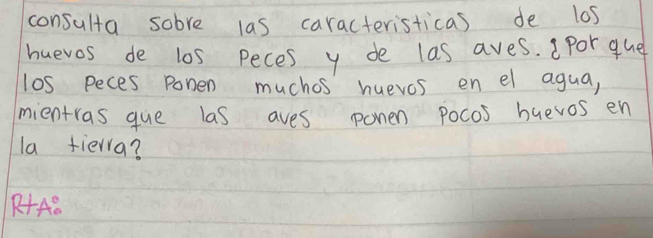 consulta sobre las caracteristicas de los
huevos de los peces y de las aves. ¿Por que
los peces ponen muchos huevos en el agua,
mientras que las aves ponen pocos huevos en
la tierra?
R+A: